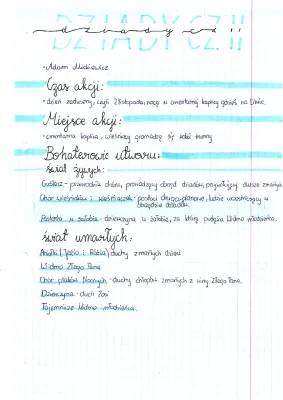 DZIADY CZ II
dziady cz. II
• Adam Mickiewicz
Czas akcji:
• dzień zaduszny, czyli 2 listopada, nocą w cmentarnej kaplicy gdzieś na Litwie.
Miejsce akcji:
• cmentarna kaplica, wieśniacy gromadzą się wokół trumny
Bohaterowie utworu:
świat żywych:
Guślarz - przewodnik chóru, prowadzący obrzęd dziadów, przywołujący dusze zmarłych
Chór wieśniaków i wieśniaczek - postaci drugoplanowe, ludzie uczestniczący w
obrzędzie dziadów.
Pasterka w żałobie - dziewczyna w żałobie, za którą podąża Widmo młodzieńca.
świat umarłych:
Aniołki (Józio i Rózia) duchy zmarłych dzieci
Widmo Złego Pana
Chór ptaków Nocnych - duchy chłopów zmarłych z winy Złego Pana.
Dziewczyna - duch Zosi
Tajemnicze Widmo młodzieńca.